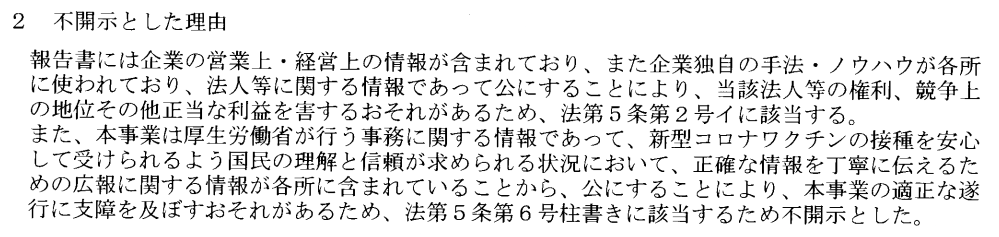 ２　不開示とした理由
報告書には企業の営業上・経営上の情報が含まれており、また企業独自の手法・ノウハウが各所
に使われており、法人等に関する情報であって公にすることにより、当該法人等の権利、競争上
の地位その他正当な利益を害するおそれがあるため、法第５条第２号イに該当する。
また、本事業は厚生労働省が行う事務に関する情報であって、新型コロナワクチンの接種を安心
して受けられるよう国民の理解と信頼が求められる状況において、正確な情報を丁寧に伝えるた
めの広報に関する情報が各所に含まれていることから、公にすることにより、本事業の適正な遂
行に支障を及ぼすおそれがあるため、法第５条第６号柱書きに該当するため不開示とした。